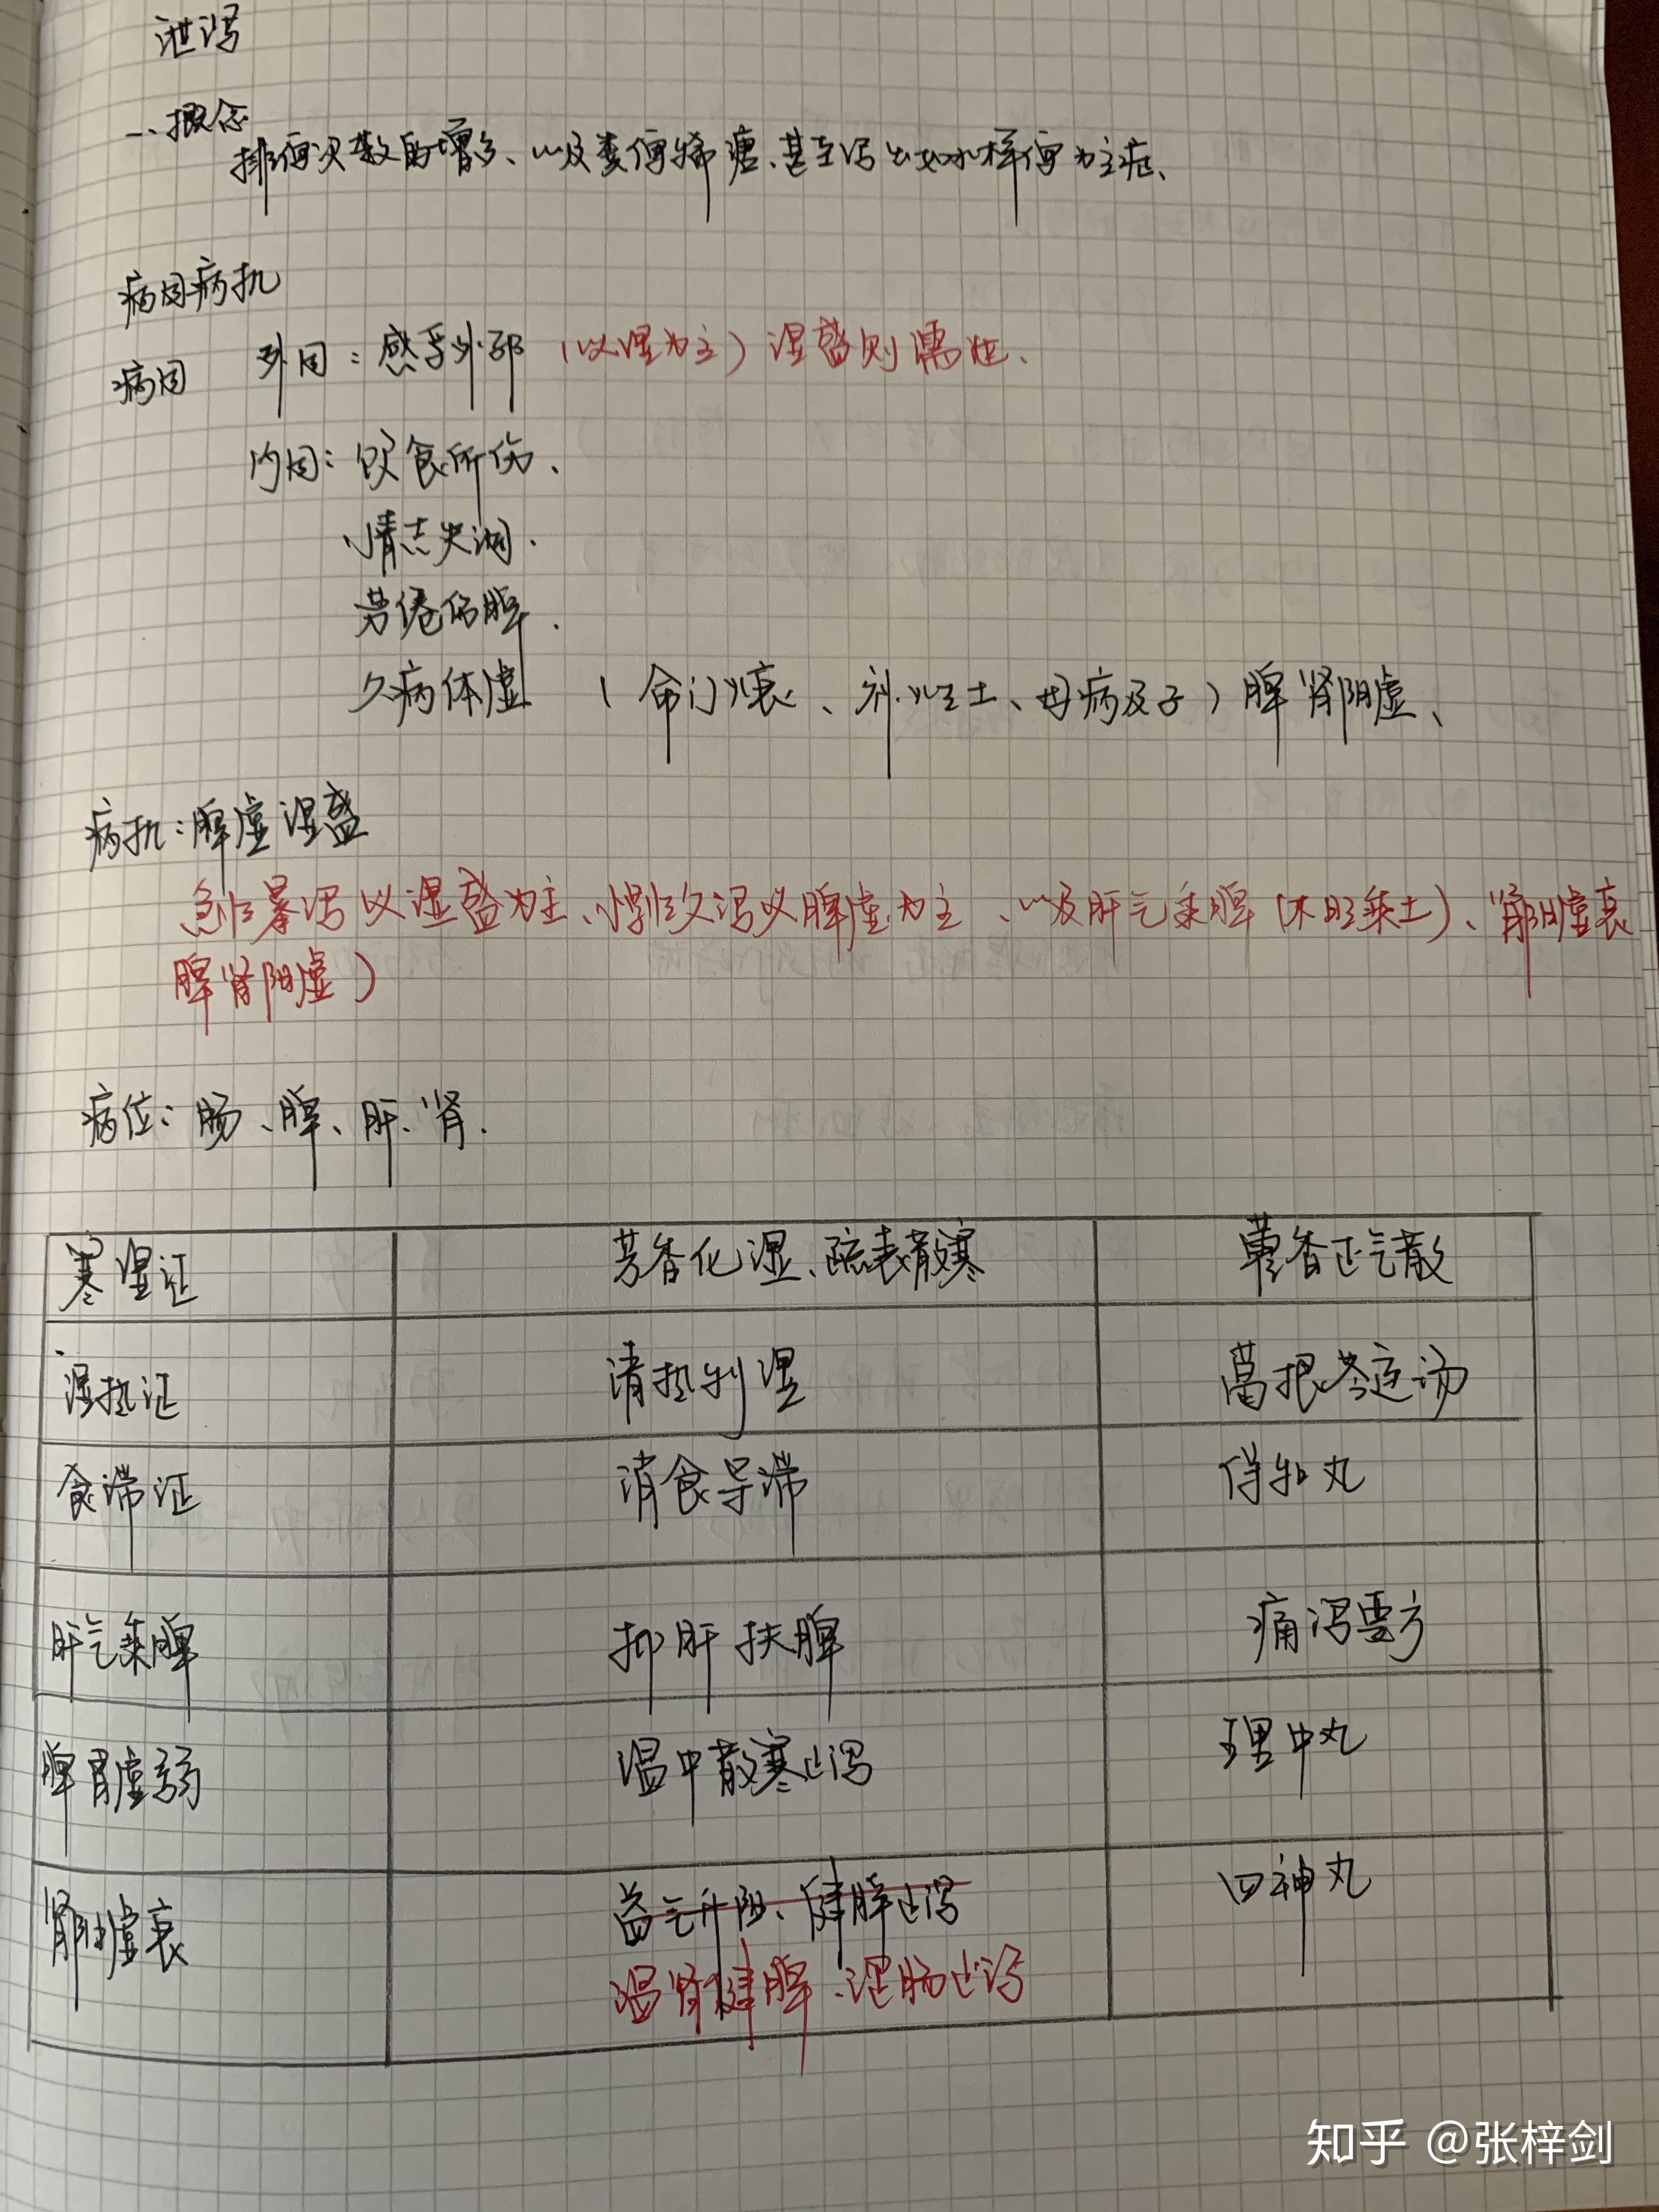 泄泻
一、概念
排便次数的增多、以及粪便稀溏、甚至泻出如水样便为主症、
病因病机
病因 外因：感受外邪（以湿为主）湿盛则濡泄、
内因：饮食所伤、
情志失调.
劳倦伤脾.
久病体虚（命门火衰、 土、母病及子）脾肾阳虚、
病机：脾虚湿盛
急性暴泻以湿盛为主、慢性久泻以脾虚为主、以及肝气乘脾（木旺乘土）、肾阳虚衰
脾肾阳虚）
病位：肠、脾、肝、肾.
寒湿证 芳香化湿、疏表散寒 藿香正气散
湿热证 清热利湿 葛根芩连汤
食滞证 消食导滞 保和丸
肝气乘脾 抑肝扶脾 痛泻要方
脾胃虚弱 温中散寒止泻 理中丸
肾阳虚衰 益气升阳、健脾止泻 四神丸
温肾健脾、涩肠止泻
知乎 @张梓剑